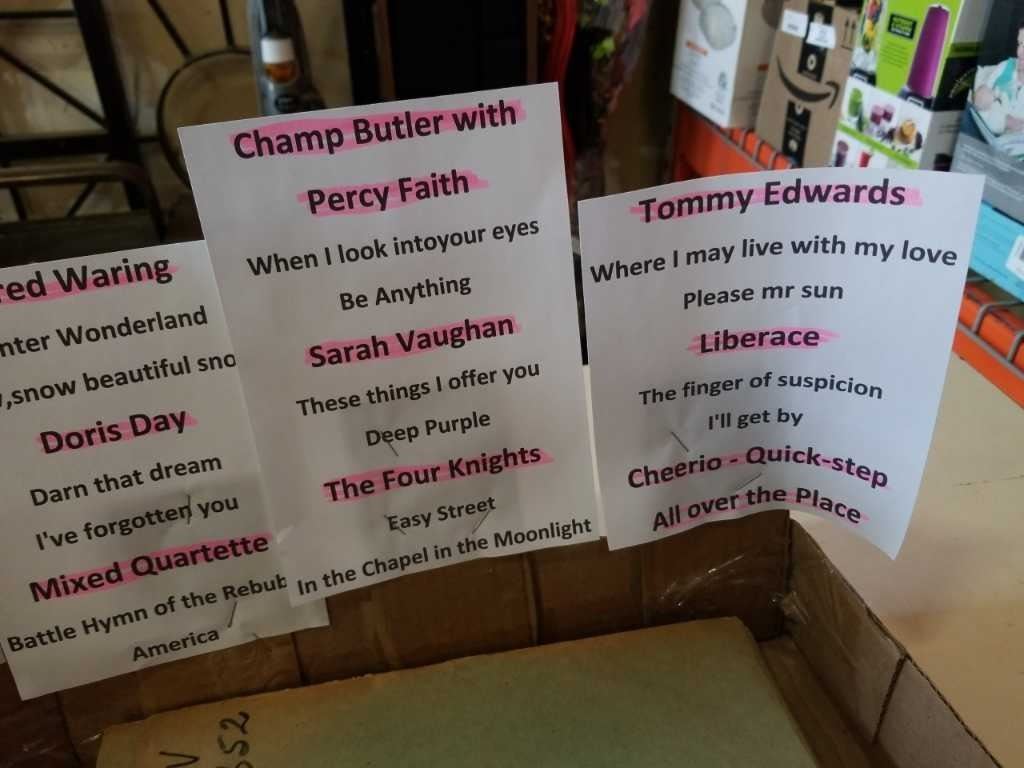 red Waring
nter Wonderland
,snow beautiful sno
Doris Day
Darn that dream
I've forgotten you
Mixed Quartette
Battle Hymn of the Rebub
America
Champ Butler with
Percy Faith
When I look intoyour eyes
Be Anything
Sarah Vaughan
These things I offer you
Deep Purple
The Four Knights
Easy Street
In the Chapel in the Moonlight
Tommy Edwards
Where I may live with my love
Please mr sun
Liberace
The finger of suspicion
I'll get by
Cheerio - Quick-step
All over the Place
V
352